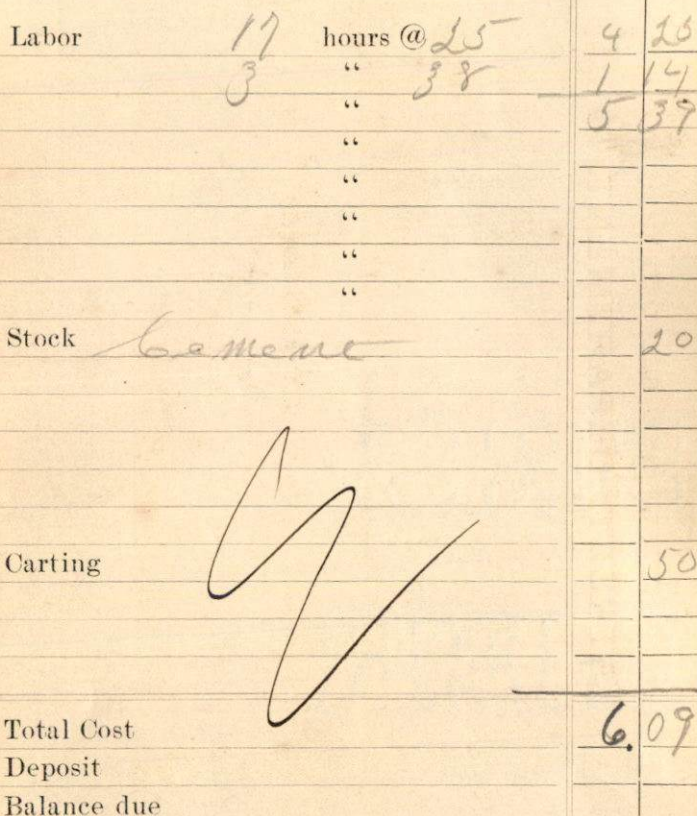 Labor 17 hours @ 25 4 25
3 “ 38 1 14
“ 5 39
“
“
“
“
“
Stock Cement 20
Carting 50
Total Cost 6.09
Deposit
Balance due